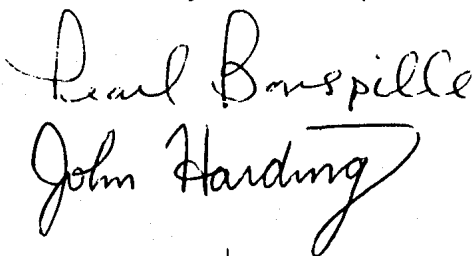 Pearl Bonspille
John Harding